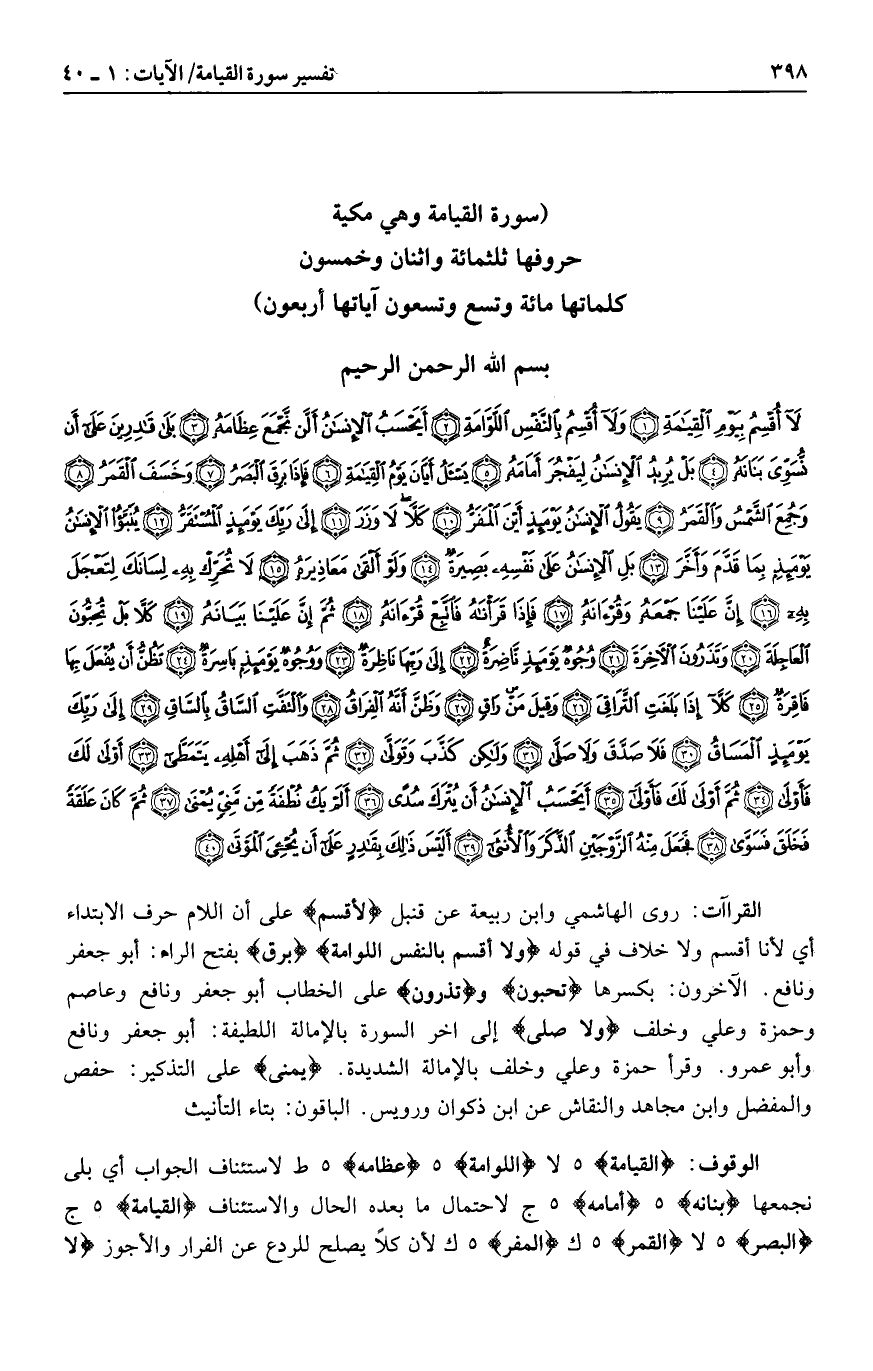 ٣٩٨ تفسير سورة القيامة/ الآيات: ١ ـ ٤٠
(سورة القيامة وهي مكية
حروفها ثلثمائة واثنان وخمسون
كلماتها مائة وتسع وتسعون آياتها أربعون)
بسم الله الرحمن الرحيم
لَآ أُقْسِمُ بِيَوْمِ ٱلْقِيَٰمَةِ ﴿١﴾ وَلَآ أُقْسِمُ بِٱلنَّفْسِ ٱللَّوَّامَةِ ﴿٢﴾ أَيَحْسَبُ ٱلْإِنسَٰنُ أَلَّن نَّجْمَعَ عِظَامَهُۥ ﴿٣﴾ بَلَىٰ قَٰدِرِينَ عَلَىٰٓ أَن
نُّسَوِّىَ بَنَانَهُۥ ﴿٤﴾ بَلْ يُرِيدُ ٱلْإِنسَٰنُ لِيَفْجُرَ أَمَامَهُۥ ﴿٥﴾ يَسْـَٔلُ أَيَّانَ يَوْمُ ٱلْقِيَٰمَةِ ﴿٦﴾ فَإِذَا بَرِقَ ٱلْبَصَرُ ﴿٧﴾ وَخَسَفَ ٱلْقَمَرُ ﴿٨﴾
وَجُمِعَ ٱلشَّمْسُ وَٱلْقَمَرُ ﴿٩﴾ يَقُولُ ٱلْإِنسَٰنُ يَوْمَئِذٍ أَيْنَ ٱلْمَفَرُّ ﴿١٠﴾ كَلَّا لَا وَزَرَ ﴿١١﴾ إِلَىٰ رَبِّكَ يَوْمَئِذٍ ٱلْمُسْتَقَرُّ ﴿١٢﴾ يُنَبَّؤُا۟ ٱلْإِنسَٰنُ
يَوْمَئِذٍۭ بِمَا قَدَّمَ وَأَخَّرَ ﴿١٣﴾ بَلِ ٱلْإِنسَٰنُ عَلَىٰ نَفْسِهِۦ بَصِيرَةٌ ﴿١٤﴾ وَلَوْ أَلْقَىٰ مَعَاذِيرَهُۥ ﴿١٥﴾ لَا تُحَرِّكْ بِهِۦ لِسَانَكَ لِتَعْجَلَ
بِهِۦٓ ﴿١٦﴾ إِنَّ عَلَيْنَا جَمْعَهُۥ وَقُرْءَانَهُۥ ﴿١٧﴾ فَإِذَا قَرَأْنَٰهُ فَٱتَّبِعْ قُرْءَانَهُۥ ﴿١٨﴾ ثُمَّ إِنَّ عَلَيْنَا بَيَانَهُۥ ﴿١٩﴾ كَلَّا بَلْ تُحِبُّونَ
ٱلْعَاجِلَةَ ﴿٢٠﴾ وَتَذَرُونَ ٱلْأَخِرَةَ ﴿٢١﴾ وُجُوهٌ يَوْمَئِذٍ نَّاضِرَةٌ ﴿٢٢﴾ إِلَىٰ رَبِّهَا نَاظِرَةٌ ﴿٢٣﴾ وَوُجُوهٌ يَوْمَئِذٍۭ بَاسِرَةٌ ﴿٢٤﴾ تَظُنُّ أَن يُفْعَلَ بِهَا
فَاقِرَةٌ ﴿٢٥﴾ كَلَّآ إِذَا بَلَغَتِ ٱلتَّرَاقِىَ ﴿٢٦﴾ وَقِيلَ مَنْ رَاقٍ ﴿٢٧﴾ وَظَنَّ أَنَّهُ ٱلْفِرَاقُ ﴿٢٨﴾ وَٱلْتَفَّتِ ٱلسَّاقُ بِٱلسَّاقِ ﴿٢٩﴾ إِلَىٰ رَبِّكَ
يَوْمَئِذٍ ٱلْمَسَاقُ ﴿٣٠﴾ فَلَا صَدَّقَ وَلَا صَلَّىٰ ﴿٣١﴾ وَلَٰكِن كَذَّبَ وَتَوَلَّىٰ ﴿٣٢﴾ ثُمَّ ذَهَبَ إِلَىٰٓ أَهْلِهِۦ يَتَمَطَّىٰٓ ﴿٣٣﴾ أَوْلَىٰ لَكَ
فَأَوْلَىٰ ﴿٣٤﴾ ثُمَّ أَوْلَىٰ لَكَ فَأَوْلَىٰٓ ﴿٣٥﴾ أَيَحْسَبُ ٱلْإِنسَٰنُ أَن يُتْرَكَ سُدًى ﴿٣٦﴾ أَلَمْ يَكُ نُطْفَةً مِّن مَّنِىٍّ يُمْنَىٰ ﴿٣٧﴾ ثُمَّ كَانَ عَلَقَةً
فَخَلَقَ فَسَوَّىٰ ﴿٣٨﴾ فَجَعَلَ مِنْهُ ٱلزَّوْجَيْنِ ٱلذَّكَرَ وَٱلْأُنثَىٰٓ ﴿٣٩﴾ أَلَيْسَ ذَٰلِكَ بِقَٰدِرٍ عَلَىٰٓ أَن يُحْـِۧىَ ٱلْمَوْتَىٰ ﴿٤٠﴾
القراآت: روى الهاشمي وابن ربيعة عن قنبل ﴿لأقسم﴾ على أن اللام حرف الابتداء
أي لأنا أقسم ولا خلاف في قوله ﴿ولا أقسم بالنفس اللوامة﴾ ﴿برق﴾ بفتح الراء: أبو جعفر
ونافع. الآخرون: بكسرها ﴿تحبون﴾ و﴿تذرون﴾ على الخطاب أبو جعفر ونافع وعاصم
وحمزة وعلي وخلف ﴿ولا صلى﴾ إلى اخر السورة بالإمالة اللطيفة: أبو جعفر ونافع
وأبو عمرو. وقرأ حمزة وعلي وخلف بالإمالة الشديدة. ﴿يمنى﴾ على التذكير: حفص
والمفضل وابن مجاهد والنقاش عن ابن ذكوان ورويس. الباقون: بتاء التأنيث
الوقوف: ﴿القيامة﴾ ٥ لا ﴿اللوامة﴾ ٥ ﴿عظامه﴾ ٥ ط لاستئناف الجواب أي بلى
نجمعها ﴿بنانه﴾ ٥ ﴿أمامه﴾ ٥ ج لاحتمال ما بعده الحال والاستئناف ﴿القيامة﴾ ٥ ج
﴿البصر﴾ ٥ لا ﴿القمر﴾ ٥ ك ﴿المفر﴾ ٥ ك لأن كلاً يصلح للردع عن الفرار والأجوز ﴿لا